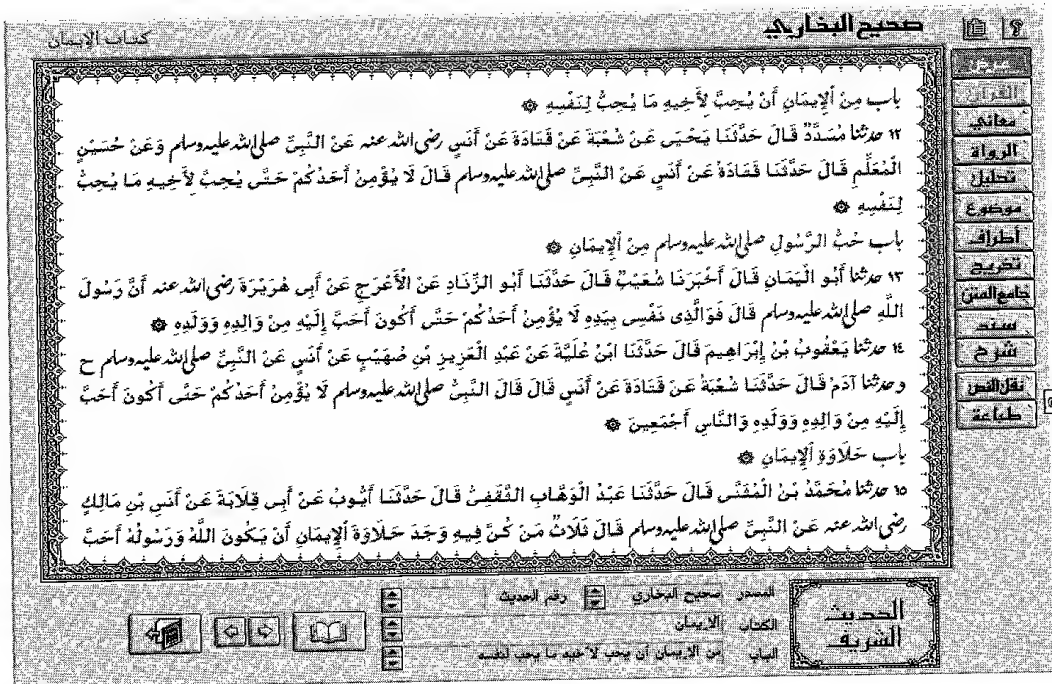 صحيح البخاري
كتاب الإيمان
باب مِنَ ٱلْإِيمَانِ أَنْ يُحِبَّ لِأَخِيهِ مَا يُحِبُّ لِنَفْسِهِ
١٢ حدثنا مُسَدَّدٌ قَالَ حَدَّثَنَا يَحْيَى عَنْ شُعْبَةَ عَنْ قَتَادَةَ عَنْ أَنَسٍ رضى الله عنه عَنْ النَّبِيِّ صلى الله عليه وسلم وَعَنْ حُسَيْنٍ
الْمُعَلِّمِ قَالَ حَدَّثَنَا قَتَادَةُ عَنْ أَنَسٍ عَنْ النَّبِيِّ صلى الله عليه وسلم قَالَ لَا يُؤْمِنُ أَحَدُكُمْ حَتَّى يُحِبَّ لِأَخِيهِ مَا يُحِبُّ
لِنَفْسِهِ
باب حُبُّ الرَّسُولِ صلى الله عليه وسلم مِنَ ٱلْإِيمَانِ
١٣ حدثنا أَبُو الْيَمَانِ قَالَ أَخْبَرَنَا شُعَيْبٌ قَالَ حَدَّثَنَا أَبُو الزِّنَادِ عَنْ الْأَعْرَجِ عَنْ أَبِى هُرَيْرَةَ رضى الله عنه أَنَّ رَسُولَ
اللَّهِ صلى الله عليه وسلم قَالَ فَوَالَّذِى نَفْسِى بِيَدِهِ لَا يُؤْمِنُ أَحَدُكُمْ حَتَّى أَكُونَ أَحَبَّ إِلَيْهِ مِنْ وَالِدِهِ وَوَلَدِهِ
١٤ حدثنا يَعْقُوبُ بْنُ إِبْرَاهِيمَ قَالَ حَدَّثَنَا ابْنُ عُلَيَّةَ عَنْ عَبْدِ الْعَزِيزِ بْنِ صُهَيْبٍ عَنْ أَنَسٍ عَنْ النَّبِيِّ صلى الله عليه وسلم ح
و حدثنا آدَمُ قَالَ حَدَّثَنَا شُعْبَةُ عَنْ قَتَادَةَ عَنْ أَنَسٍ قَالَ قَالَ النَّبِيُّ صلى الله عليه وسلم لَا يُؤْمِنُ أَحَدُكُمْ حَتَّى أَكُونَ أَحَبَّ
إِلَيْهِ مِنْ وَالِدِهِ وَوَلَدِهِ وَالنَّاسِ أَجْمَعِينَ
باب حَلَاوَةِ ٱلْإِيمَانِ
١٥ حدثنا مُحَمَّدُ بْنُ الْمُثَنَّى قَالَ حَدَّثَنَا عَبْدُ الْوَهَّابِ الثَّقَفِىُّ قَالَ حَدَّثَنَا أَيُّوبُ عَنْ أَبِى قِلَابَةَ عَنْ أَنَسِ بْنِ مَالِكٍ
رضى الله عنه عَنْ النَّبِيِّ صلى الله عليه وسلم قَالَ ثَلَاثٌ مَنْ كُنَّ فِيهِ وَجَدَ حَلَاوَةَ ٱلْإِيمَانِ أَنْ يَكُونَ اللَّهُ وَرَسُولُهُ أَحَبَّ
عرض
القرآن
معاني
الرواة
تحليل
موضوع
أطراف
تخريج
جامع المتن
سند
شرح
نقل النص
طباعة
الحديث
الشريف
المصدر صحيح البخاري رقم الحديث
الكتاب الإيمان
الباب من الإيمان أن يحب لأخيه ما يحب لنفسه